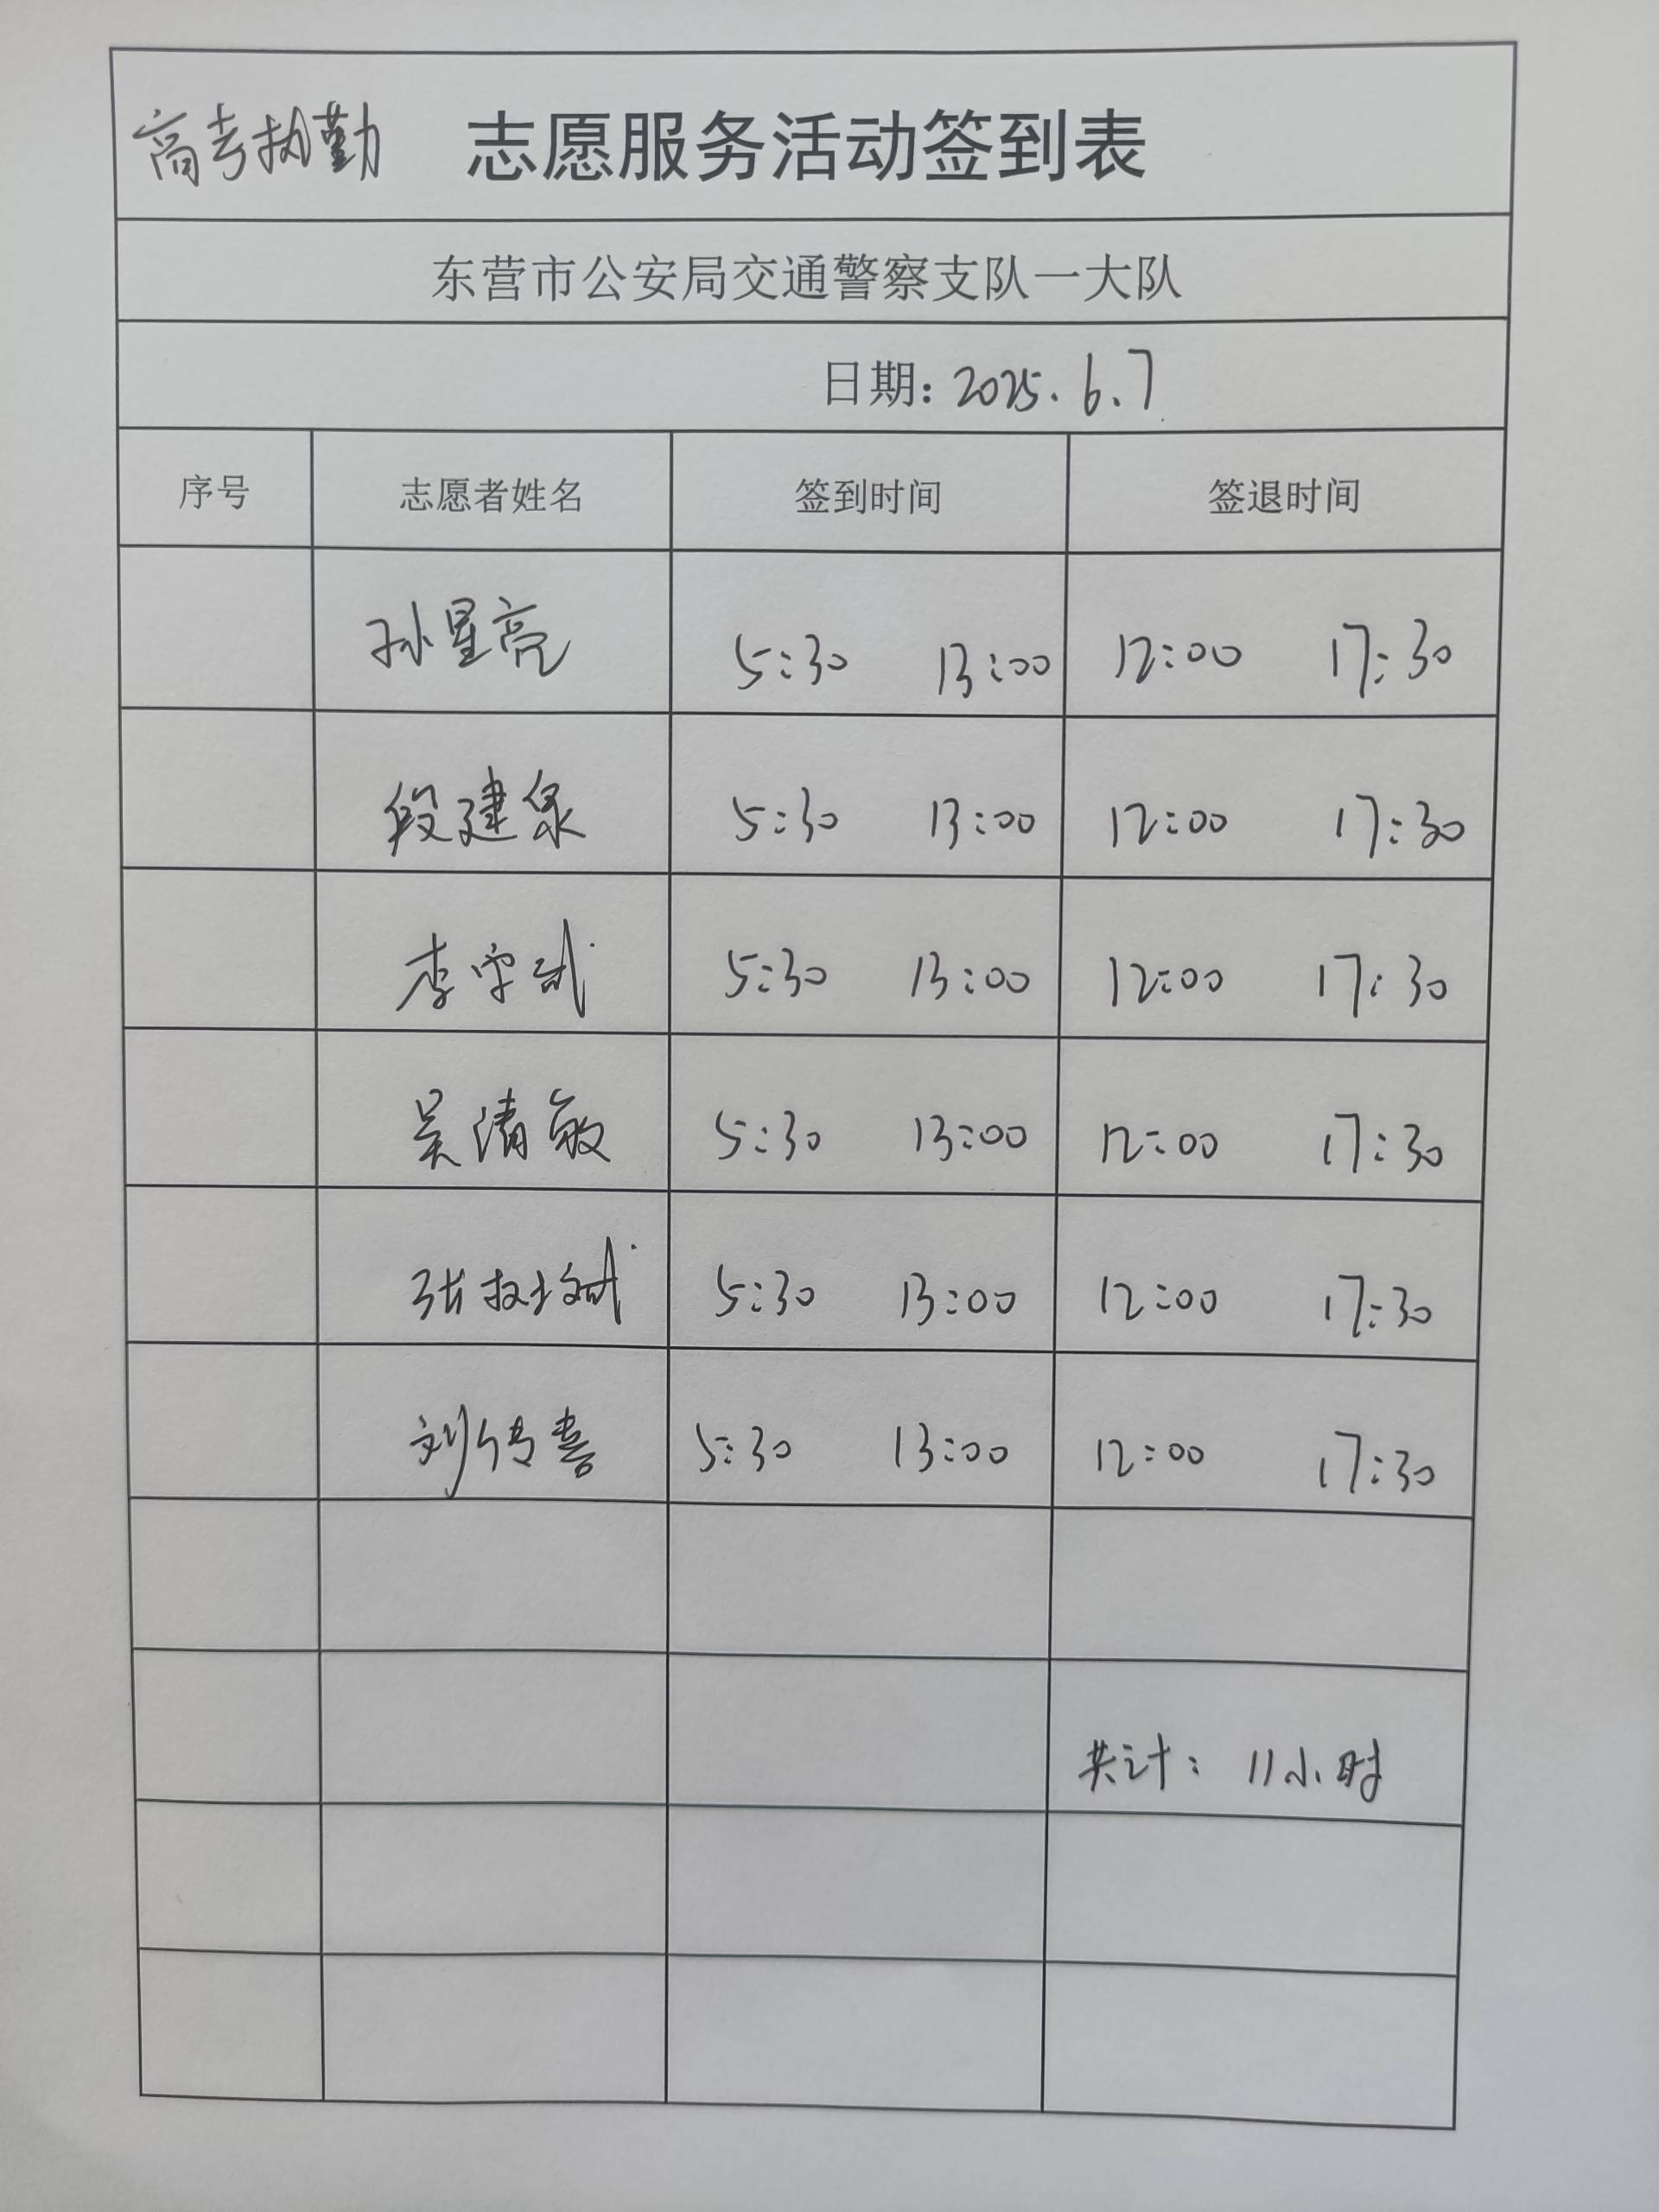 高考执勤 志愿服务活动签到表
东营市公安局交通警察支队一大队
日期: 2025.6.7
序号 志愿者姓名 签到时间 签退时间
孙星亮 5:30 13:00 12:00 17:30
段建泉 5:30 13:00 12:00 17:30
李守斌 5:30 13:00 12:00 17:30
吴清敏 5:30 13:00 12:00 17:30
张 5:30 13:00 12:00 17:30
刘传喜 5:30 13:00 12:00 17:30
共计: 11小时